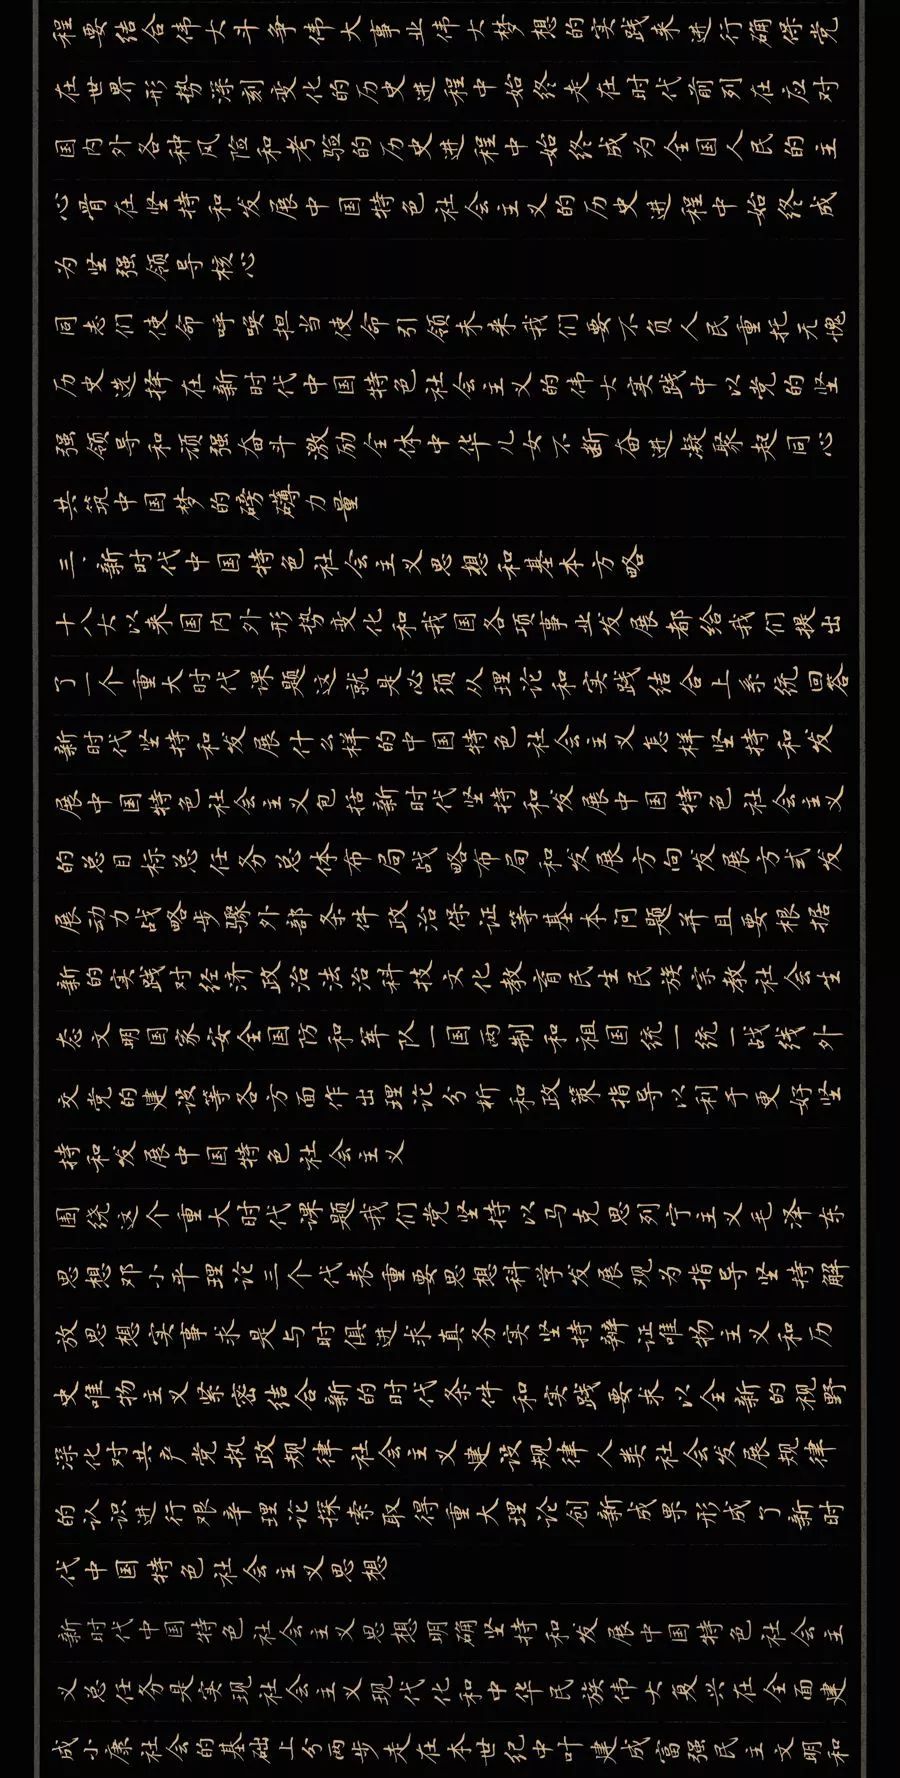 程要结合伟大斗争伟大事业伟大梦想的实践来进行确保党
在世界形势深刻变化的历史进程中始终走在时代前列在应对
国内外各种风险和考验的历史进程中始终成为全国人民的主
心骨在坚持和发展中国特色社会主义的历史进程中始终成
为坚强领导核心
同志们使命呼唤担当使命引领未来我们要不负人民重托无愧
历史选择在新时代中国特色社会主义的伟大实践中以党的坚
强领导和顽强奋斗激励全体中华儿女不断奋进凝聚起同心
共筑中国梦的磅礴力量
三、新时代中国特色社会主义思想和基本方略
十八大以来国内外形势变化和我国各项事业发展都给我们提出
了一个重大时代课题这就是必须从理论和实践结合上系统回答
新时代坚持和发展什么样的中国特色社会主义怎样坚持和发
展中国特色社会主义包括新时代坚持和发展中国特色社会主义
的总目标总任务总体布局战略布局和发展方向发展方式发
展动力战略步骤外部条件政治保证等基本问题并且要根据
新的实践对经济政治法治科技文化教育民生民族宗教社会生
态文明国家安全国防和军队一国两制和祖国统一统一战线外
交党的建设等各方面作出理论分析和政策指导以利于更好坚
持和发展中国特色社会主义
围绕这个重大时代课题我们党坚持以马克思列宁主义毛泽东
思想邓小平理论三个代表重要思想科学发展观为指导坚持解
放思想实事求是与时俱进求真务实坚持辩证唯物主义和历
史唯物主义紧密结合新的时代条件和实践要求以全新的视野
深化对共产党执政规律社会主义建设规律人类社会发展规律
的认识进行艰辛理论探索取得重大理论创新成果形成了新时
代中国特色社会主义思想
新时代中国特色社会主义思想明确坚持和发展中国特色社会主
义总任务是实现社会主义现代化和中华民族伟大复兴在全面建
成小康社会的基础上分两步走在本世纪中叶建成富强民主文明和